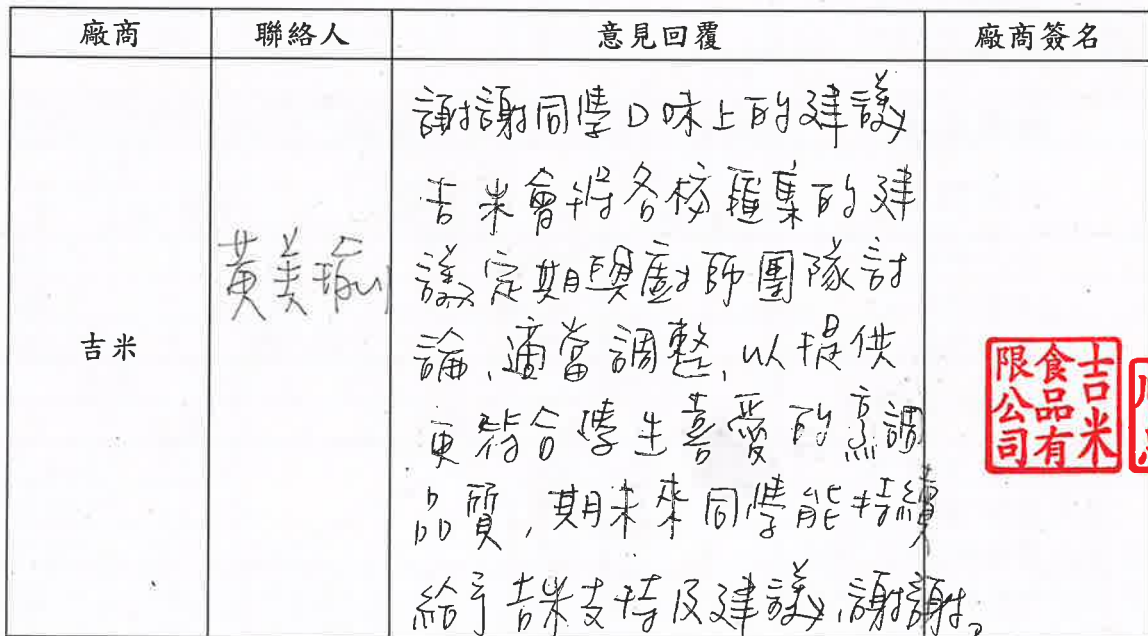 廠商
聯絡人
意見回覆
廠商簽名
吉米
黃美瑜
謝謝同學口味上的建議
吉米會將各校匯集的建
議定期與廚師團隊討
論、適當調整、以提供
更符合學生喜愛的烹調
品質，期未來同學能持續
給予吉米支持及建議、謝謝。
吉米
食品有
限公司